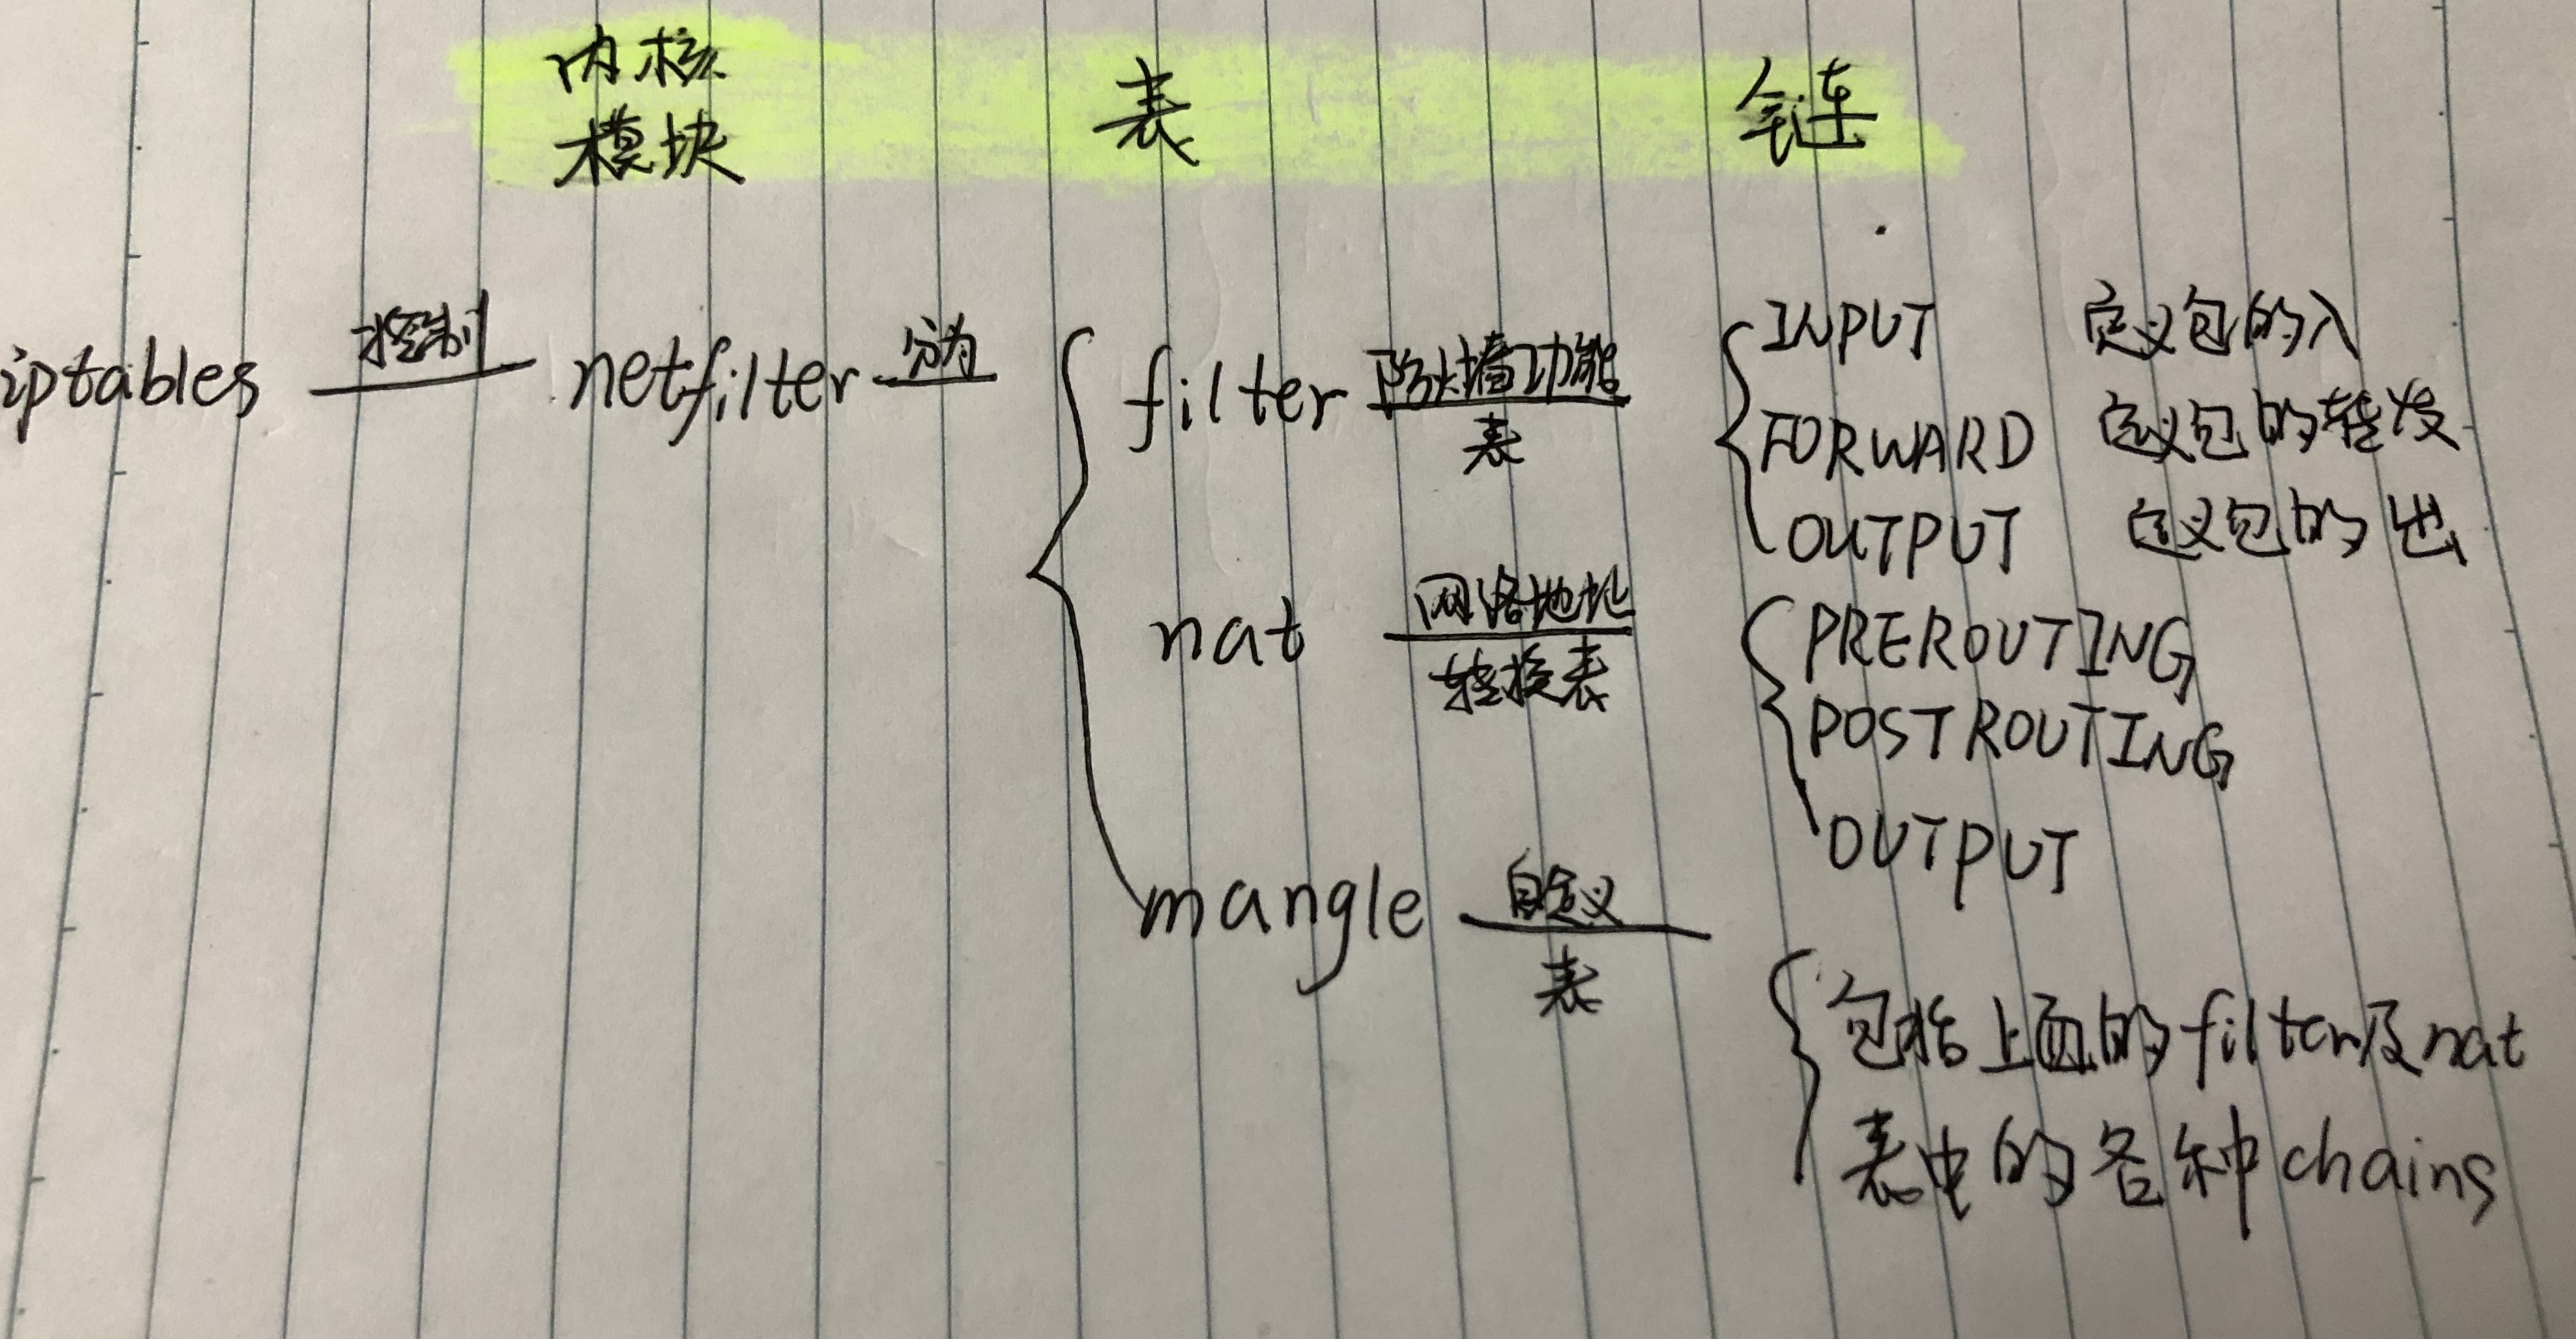 内核
模块
表
链
iptables 控制 netfilter 分为
filter 防火墙功能
表
INPUT 定义包的入
FORWARD 定义包的转发
OUTPUT 定义包的出
nat 网络地址
转换表
PREROUTING
POSTROUTING
OUTPUT
mangle 自定义
表
包括上面的filter及nat
表中的各种chains